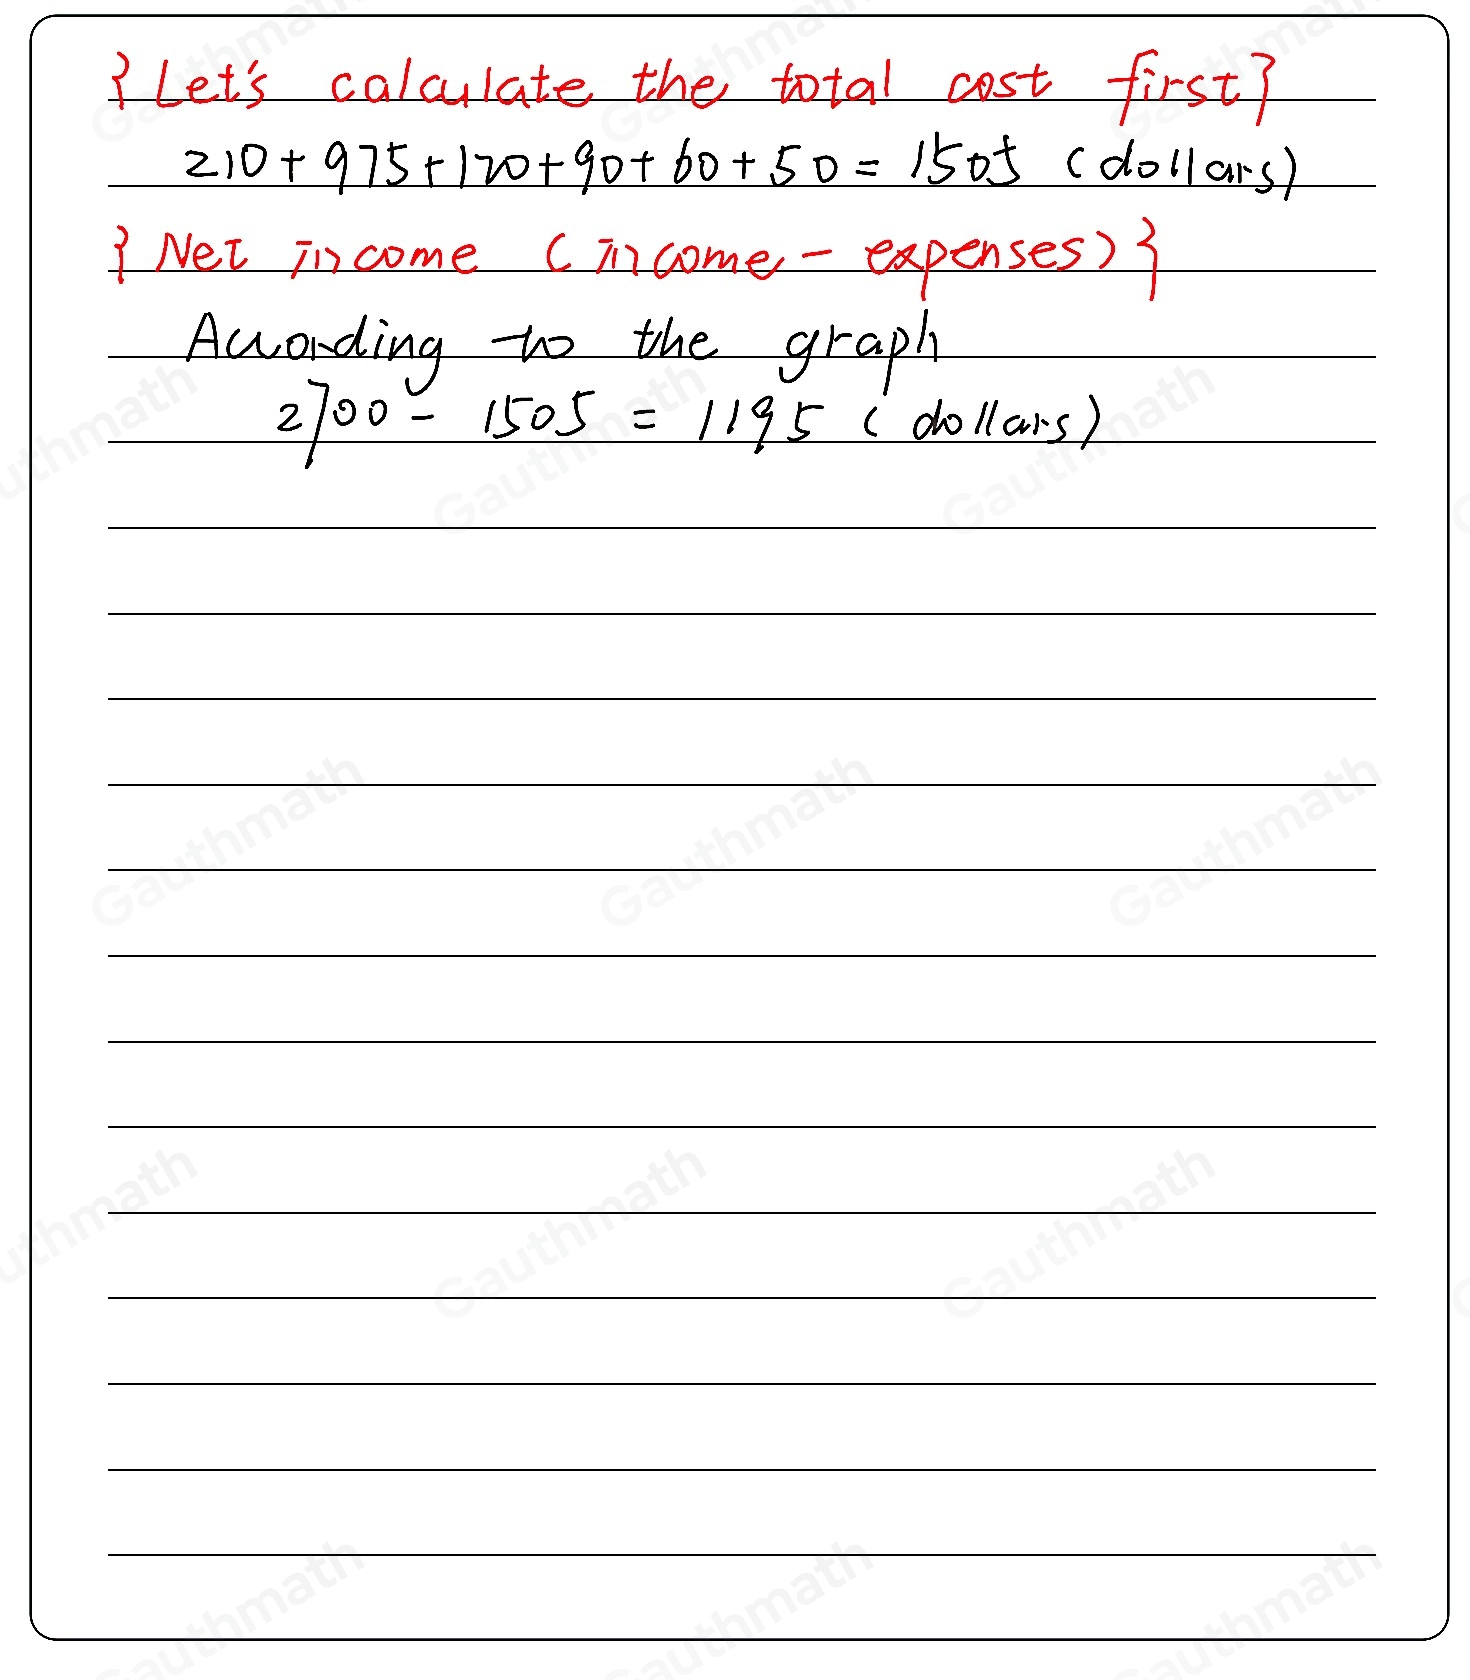 {Let's calculate the total cost first}
210+975+120+90+60+50=1505 (dollars)
{Net income (income-expenses)}
According to the graph
2700-1505=1195 (dollars)
Gauthmath